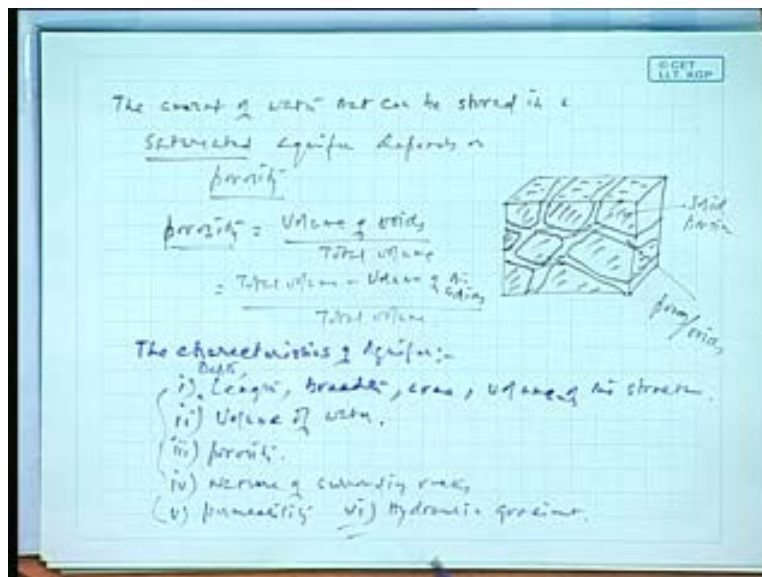 © CET
I.I.T. KGP
The amount of water that can be stored in a
saturated aquifer depends on
porosity
porosity = Volume of voids
Total volume
= Total volume - Volume of the solids
Total volume
solid
pores/voids
The characteristics of Aquifer:-
Depth,
i) Length, breadth, area, volume of the
ii) Volume of water.
iii) porosity.
iv) Nature of surrounding rocks
(v) permeability vi) Hydraulic gradient.